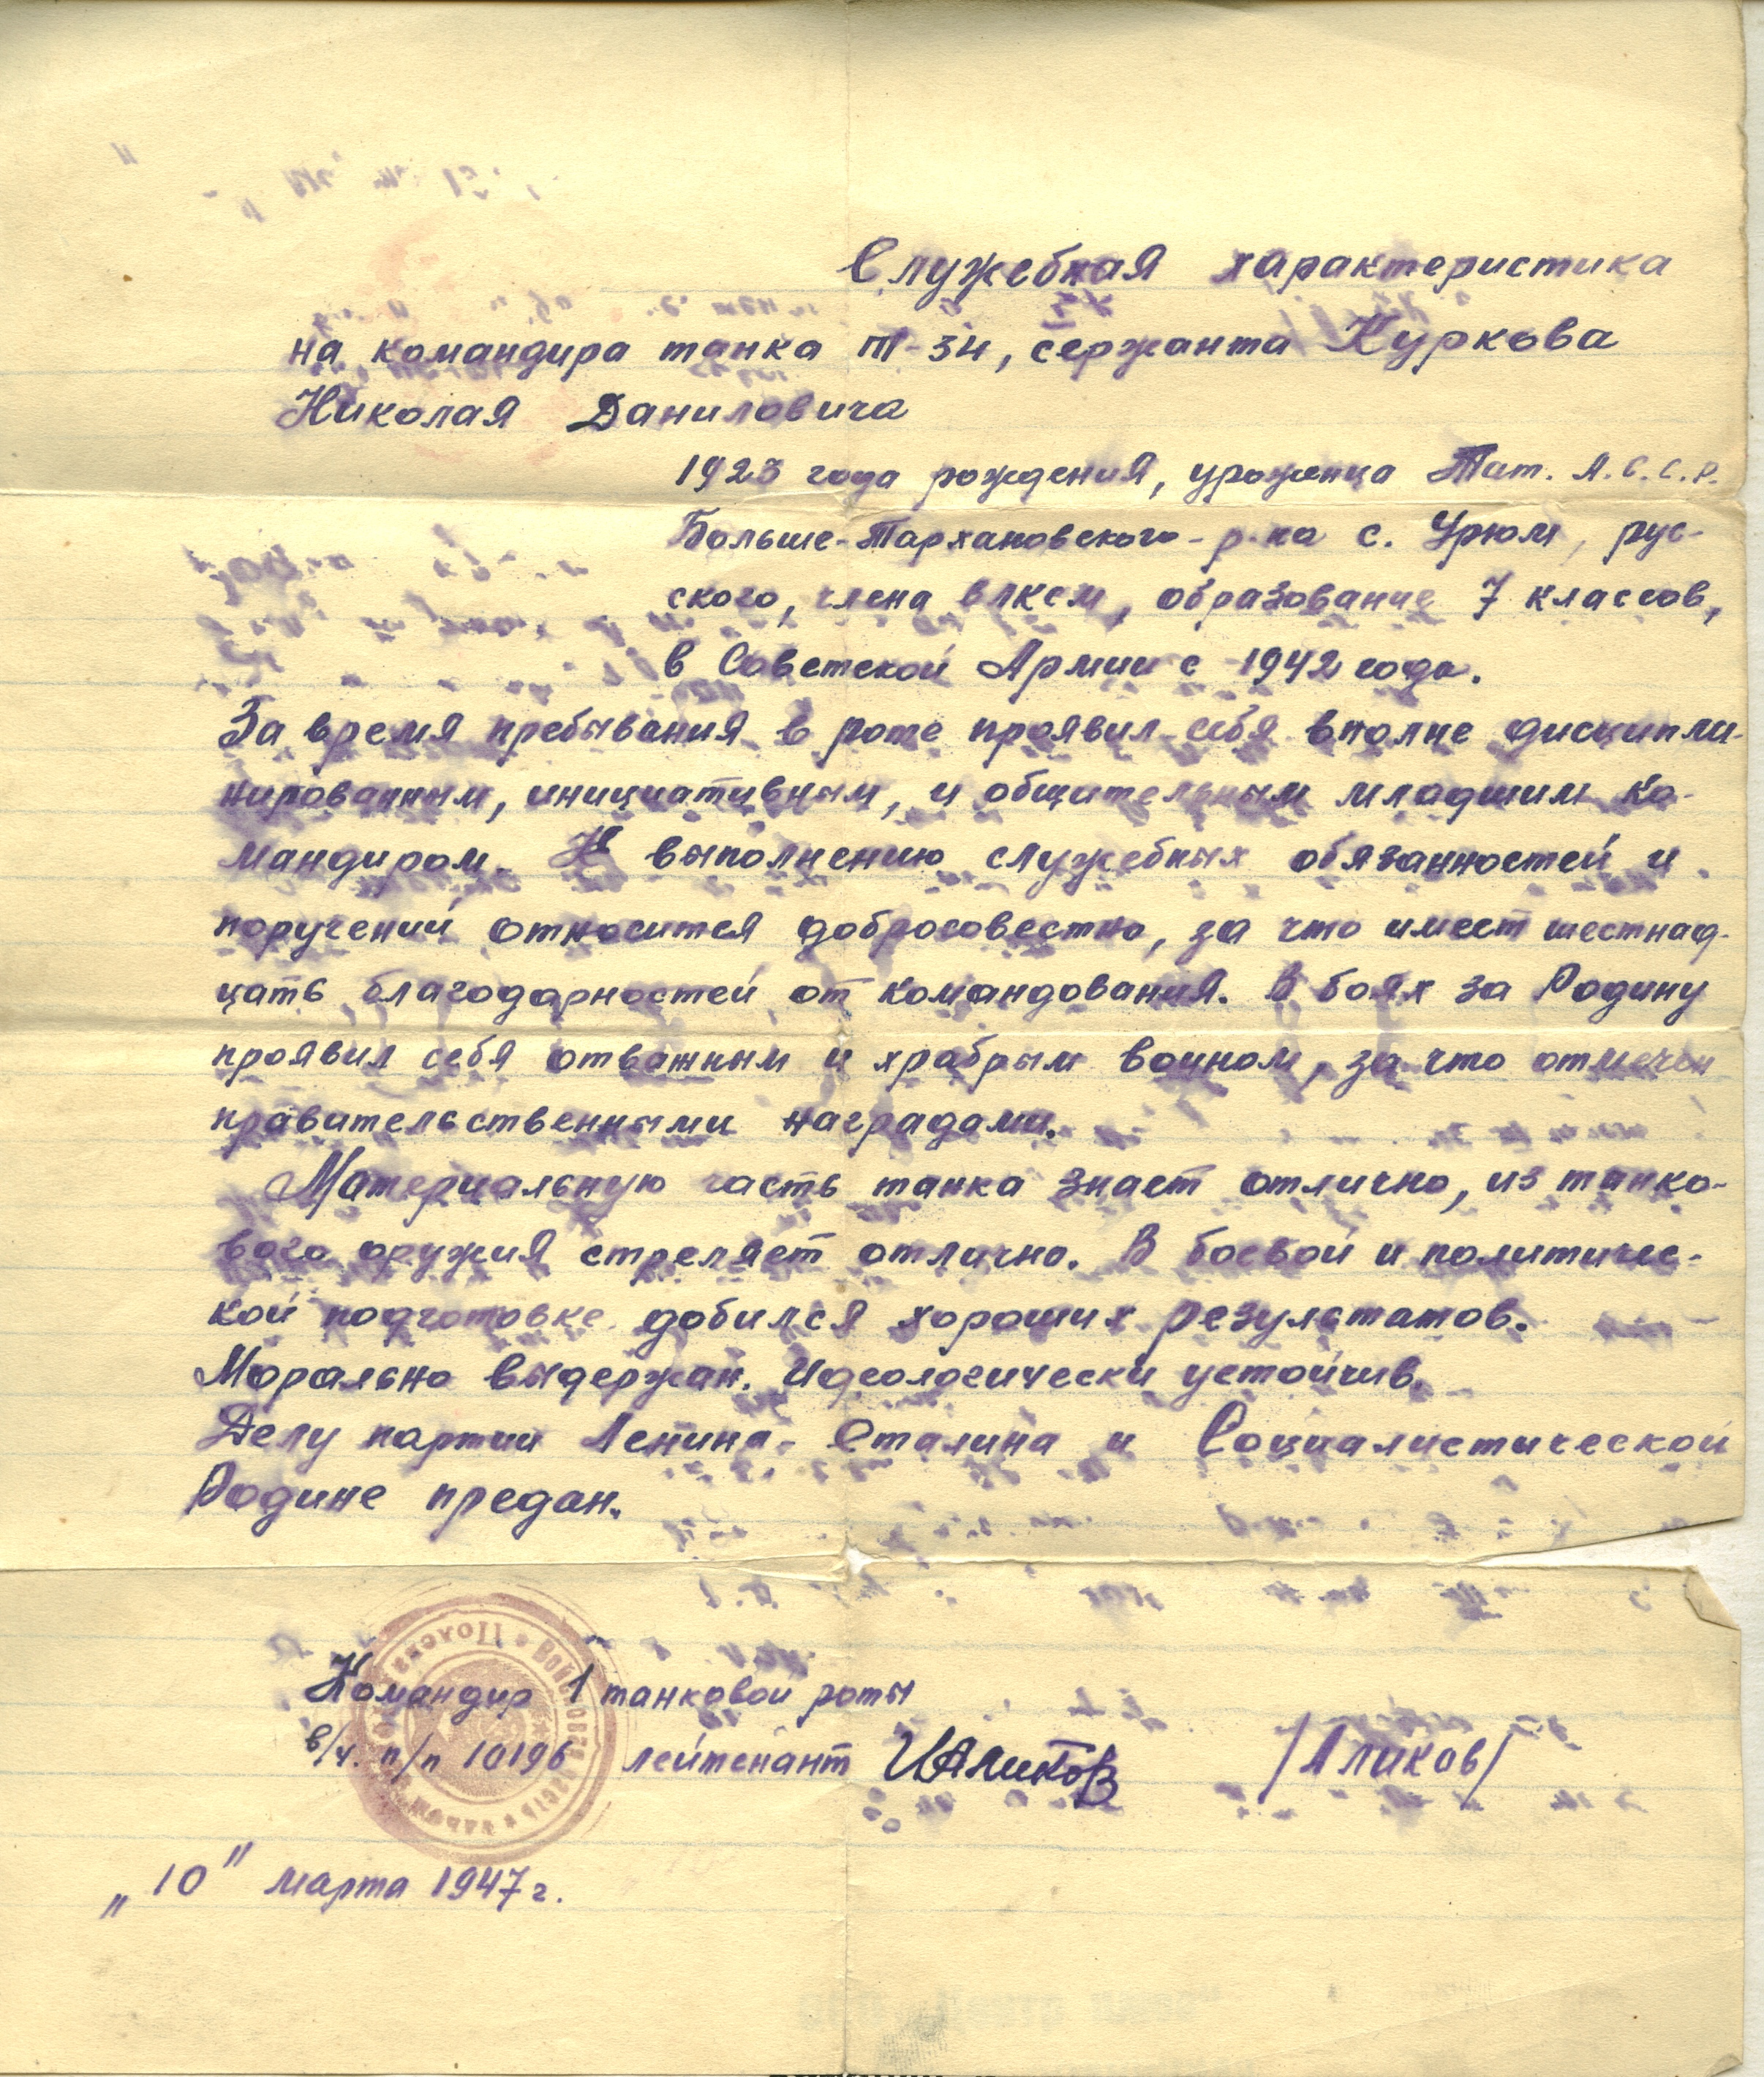 Служебная характеристика
на командира танка Т-34, сержанта Куркова
Николая Даниловича
1923 года рождения, уроженца Тат. А.С.С.Р.
Больше-Тархановского-р-на с. Урюм, рус-
ского, члена ВЛКСМ, образование 7 классов,
в Советской Армии с 1942 года.
За время пребывания в роте проявил себя вполне дисципли-
нированным, инициативным, и общительным младшим ко-
мандиром. К выполнению служебных обязанностей и
поручений относится добросовестно, за что имеет шестнад-
цать благодарностей от командования. В боях за Родину
проявил себя отважным и храбрым воином, за что отмечен
правительственными наградами.
Материальную часть танка знает отлично, из танко-
вого оружия стреляет отлично. В боевой и политичес-
кой подготовке добился хороших результатов.
Морально выдержан. Идеологически устойчив.
Делу партии Ленина-Сталина и Социалистической
Родине предан.
Командир 1 танковой роты
в/ч. п/п 10196 лейтенант ИАликов /Аликов/
Войсковая часть * Полевая почта
„10" марта 1947 г.